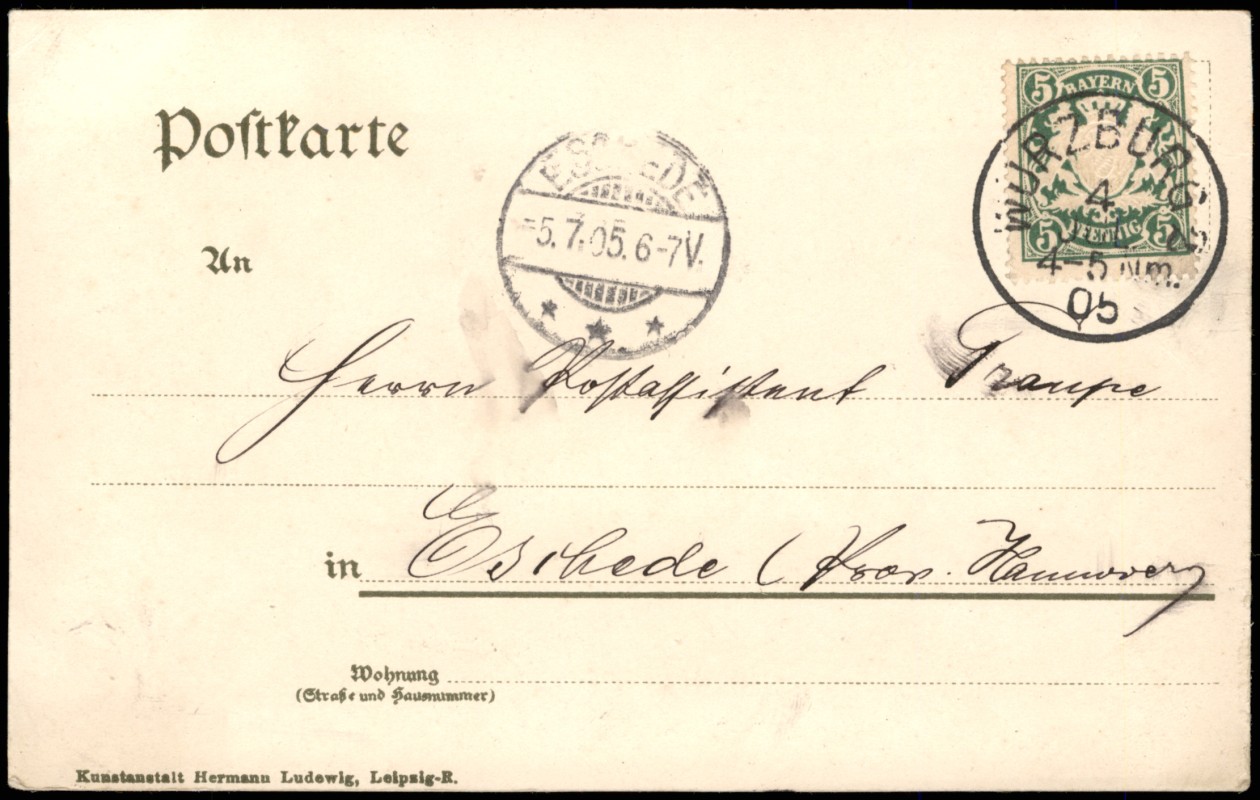 5 BAYERN 5
5 PFENNIG 5
WÜRZBURG
4
4-5 Nm.
05
Postkarte
ESCHEDE
-5.7.05.6-7V.
An
Herrn Postassistent
in Eschede (Prov. Hannover)
Wohnung
(Straße und Hausnummer)
Kunstanstalt Hermann Ludewig, Leipzig-R.